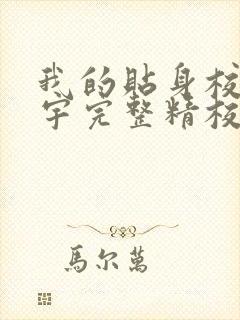 我的貼身校
宇完整精校
馬尔萬